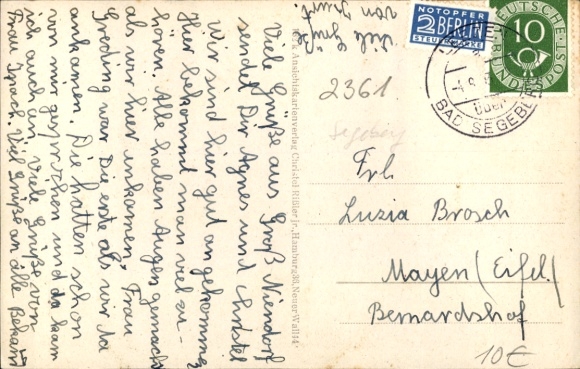 Viele Grüße aus Groß Niendorf
sendet Dir Agnes und Christel
Wir sind hier gut angekommen
Hier bekommt man viel zu-
hören. Alle haben Augen gemacht
als wir hier ankamen, Frau
Greding war die erste als wir da
ankamen. Die hatten schon
von mir gesprochen und da kam
ich auch an. Viele Grüße von
Frau Ipach. Viel Grüße an alle Bekann
Viele Grüße
von
NOTOPFER
2 BERLIN
STEUERMARKE
DEUTSCHE
10
BUNDESPOST
BAD SEGEBERG
2361
Segeberg
Ansichtskartenverlag Christof Rüßler jr., Hamburg 36, Neuer Wall 14
Frl.
Luzia Brosch
Mayen/Eifel/
Bernardshof
10€